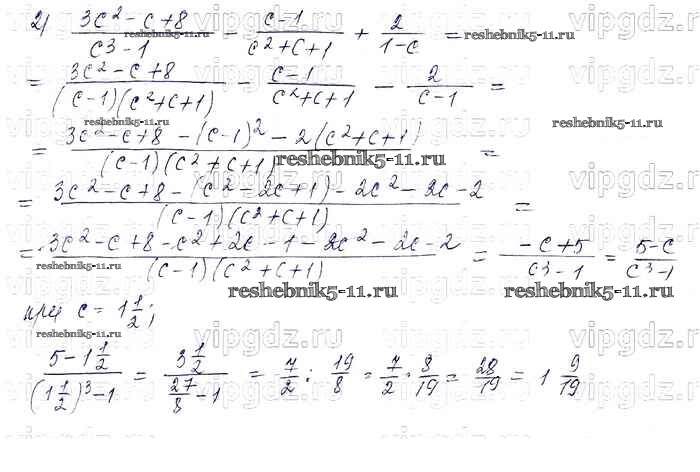 2) (3c² - c + 8)/(c³ - 1) - (c - 1)/(c² + c + 1) + 2/(1 - c) =
= (3c² - c + 8)/((c - 1)(c² + c + 1)) - (c - 1)/(c² + c + 1) - 2/(c - 1) =
= (3c² - c + 8 - (c - 1)² - 2(c² + c + 1))/((c - 1)(c² + c + 1)) =
= (3c² - c + 8 - (c² - 2c + 1) - 2c² - 2c - 2)/((c - 1)(c² + c + 1)) =
= (3c² - c + 8 - c² + 2c - 1 - 2c² - 2c - 2)/((c - 1)(c² + c + 1)) = (-c + 5)/(c³ - 1) = (5 - c)/(c³ - 1)
при c = 1 1/2;
(5 - 1 1/2)/((1 1/2)³ - 1) = (3 1/2)/(27/8 - 1) = 7/2 : 19/8 = 7/2 · 8/19 = 28/19 = 1 9/19
vipgdz.ru
reshebnik5-11.ru